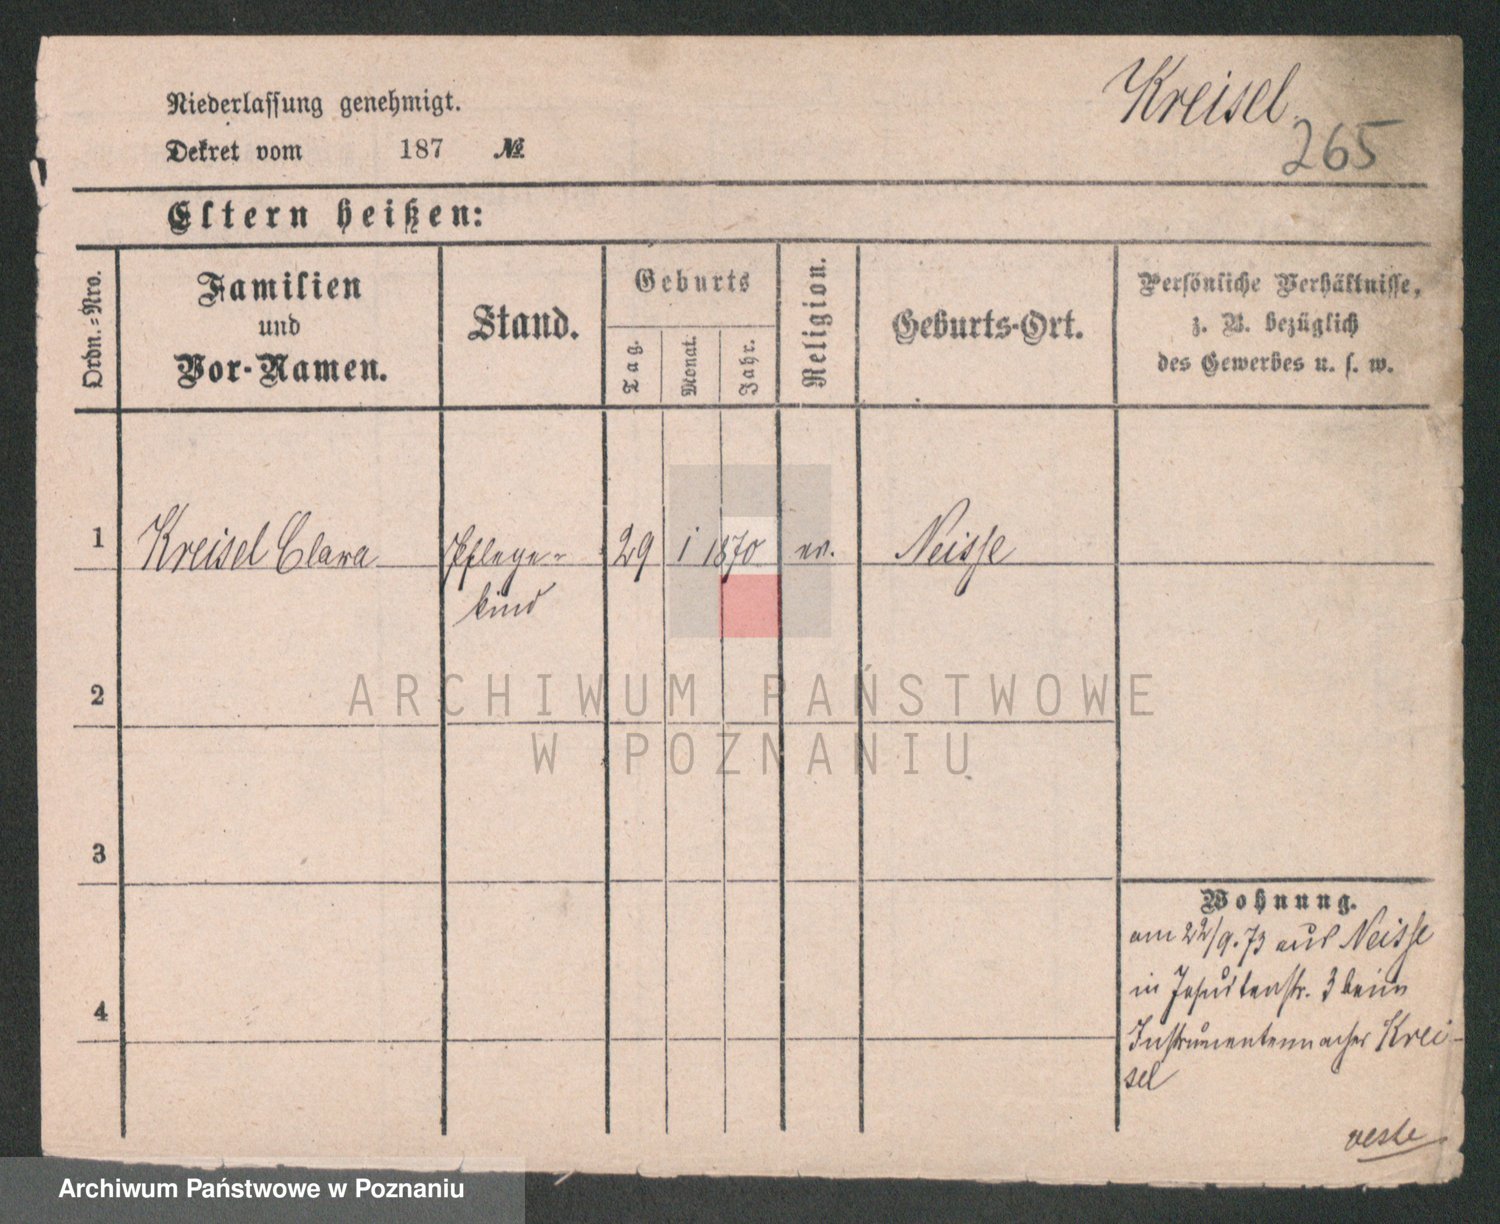 Kreisel
265
Niederlassung genehmigt.
Dekret vom 187 №
Eltern heißen:
Ordn.-Nro.
Familien
und
Vor-Namen.
Stand.
Geburts
Tag.
Monat.
Jahr.
Religion.
Geburts-Ort.
Persönliche Verhältnisse,
z. B. bezüglich
des Gewerbes u. s. w.
1 Kreisel Clara Pflege- 29 1 1870 ev. Neisse
kind
2
3
4
Wohnung.
am 22/9.73 aus Neisse
in Jesuitenstr. 3 beim
Instrumentenmacher Krei-
sel
ARCHIWUM PAŃSTWOWE
W POZNANIU
Archiwum Państwowe w Poznaniu